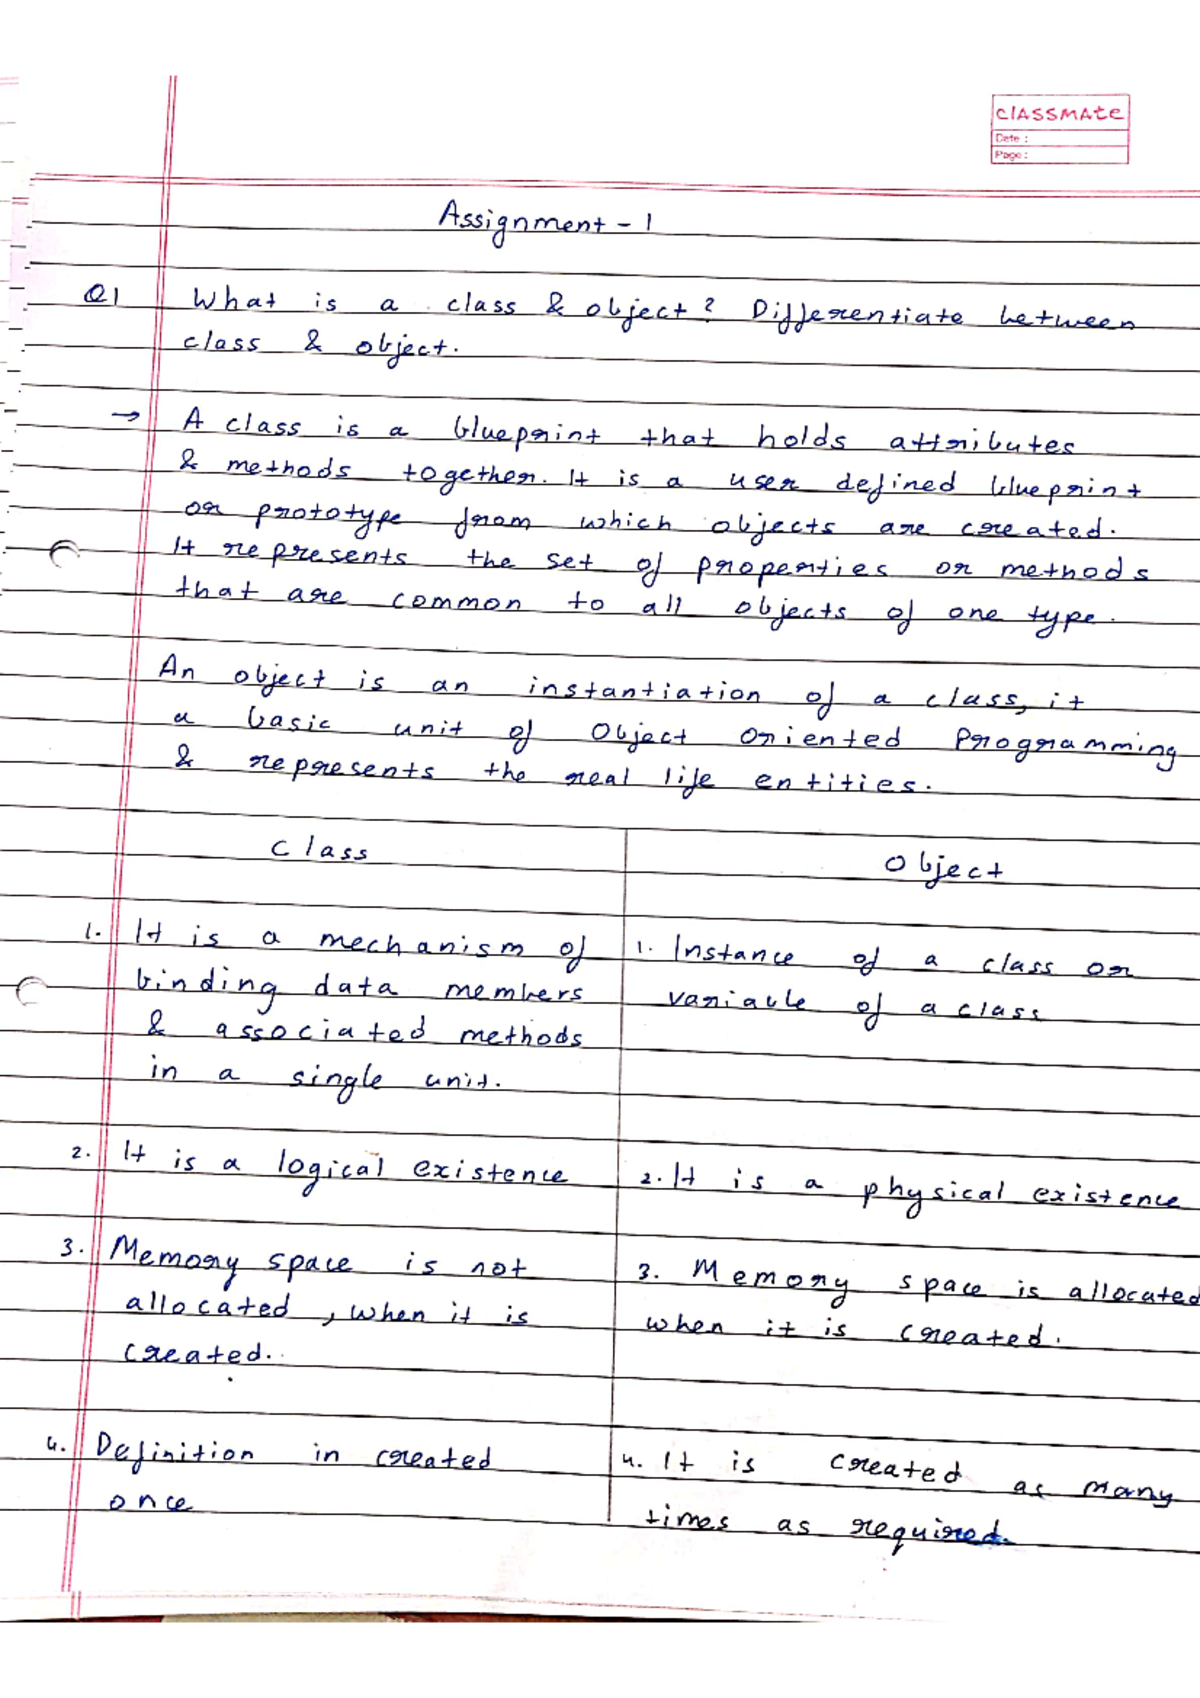 classmate
Date :
Page :
Assignment - 1
Q1 What is a class & object? Differentiate between
class & object.
→ A class is a blueprint that holds attributes
& methods together. It is a user defined blueprint
or prototype from which objects are created.
It represents the set of properties or methods
that are common to all objects of one type.
An object is an instantiation of a class, it
a basic unit of Object Oriented Programming
& represents the real life entities.
Class Object
1. It is a mechanism of 1. Instance of a class or
binding data members variable of a class
& associated methods
in a single unit.
2. It is a logical existence 2. It is a physical existence
3. Memory space is not 3. Memory space is allocated
allocated, when it is when it is created.
created.
4. Definition in created 4. It is created as many
once times as required.